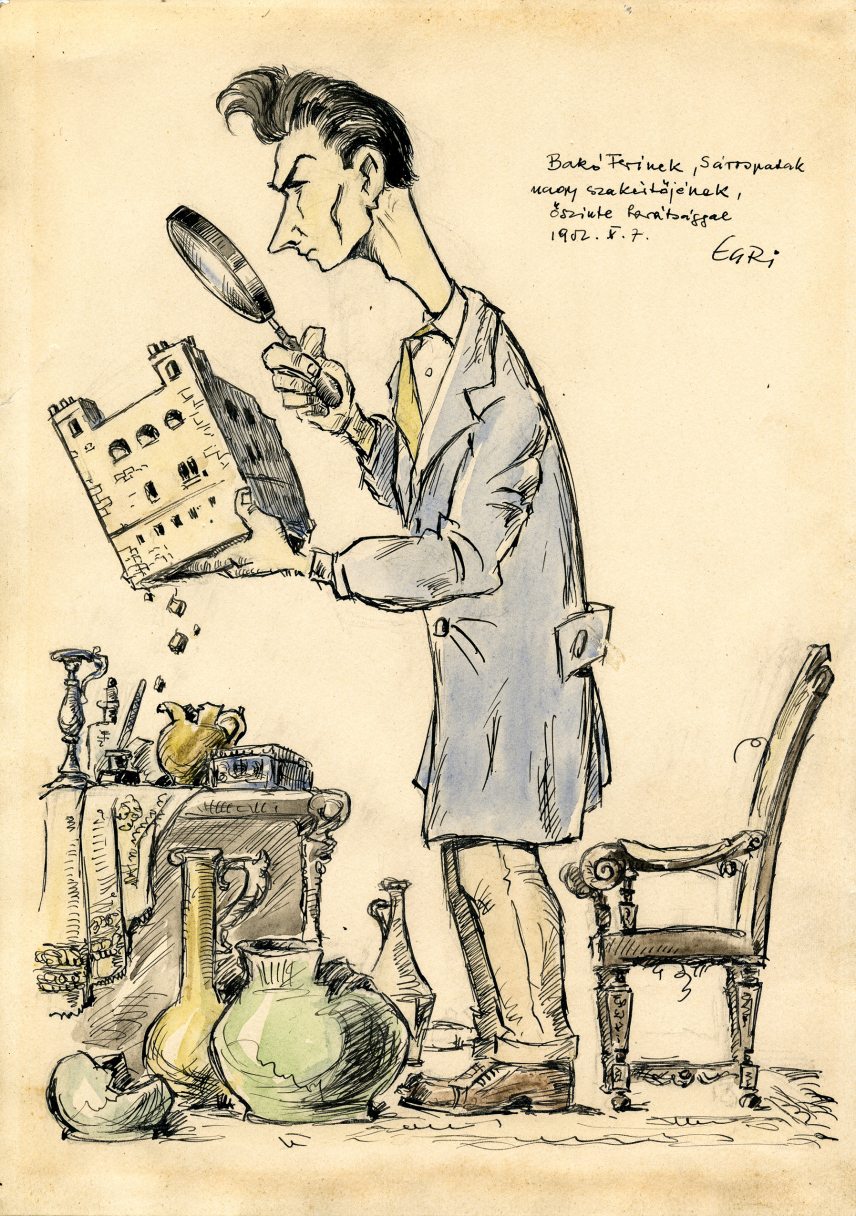 Bakó Ferinek, Sárospatak
nagy szakértőjének,
őszinte barátsággal
1952. X. 7.
EGRi